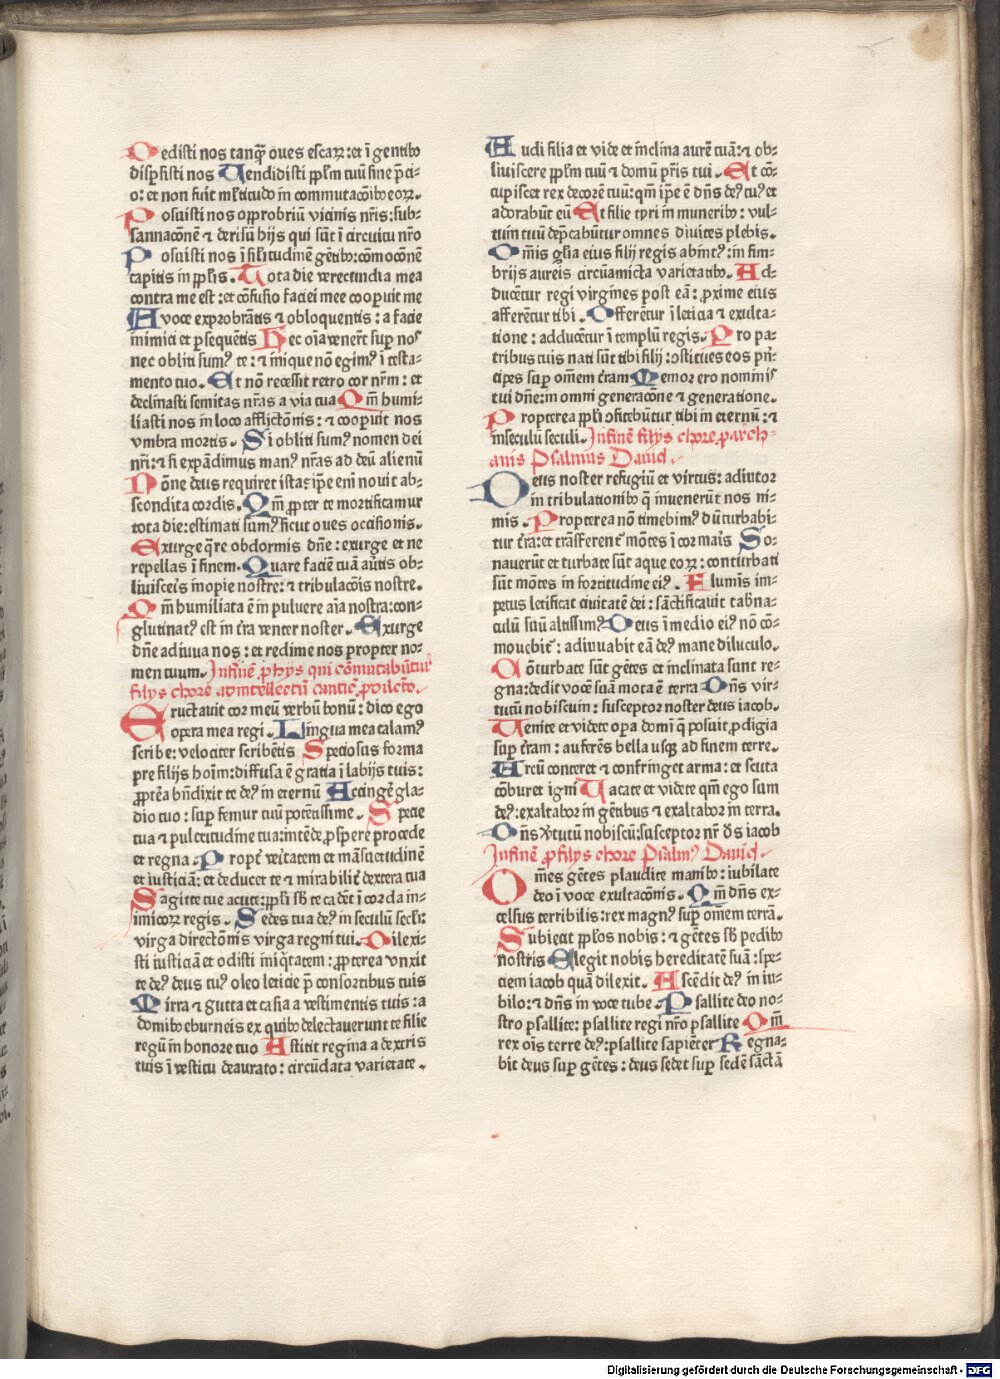 Dedisti nos tanq̄ꝫ oues escaꝝ: et ī gentibꝰ
disp̱sisti nos Uendidisti pp̄lm tuū sine p̄ci⸗
o: et non fuit ml̄titudo in commutacōibꝰ eoꝝ.
Posuisti nos opprobriū vicinis nr̄is: sub⸗
sannacōnē ⁊ derisū hijs qui sūt ī circuitu nr̄o
Posuisti nos ī sil̄itudinē gētibꝰ: cōmocōnē
capitis in pp̄lis. Tota die verecundia mea
contra me est: et cōfusio faciei mee coop̱uit me
A voce exprobrātis ⁊ obloquentis: a facie
inimici et p̱sequētis Hec oīa venerūt sup̱ nos
nec obliti sumꝰ te: ⁊ inique nō egimꝰ ī testa⸗
mento tuo. Et nō recessit retro cor nr̄m: et
declinasti semitas nr̄as a via tua Qm̄ humi⸗
liasti nos in loco afflictōnis: ⁊ coop̱uit nos
vmbra mortis. Si obliti sumꝰ nomen dei
nr̄i: ⁊ si expādimus manꝰ nr̄as ad deū alienū
Nōne deus requiret ista: ip̄e eni᷒ nouit ab⸗
scondita cordis. Qm̄ ꝓpter te mortificamur
tota die: estimati sumꝰ sicut oues occisionis.
Exurge q̄re obdormis dn̄e: exurge et ne
repellas ī finem. Quare faciē tuā au̓tis ob⸗
liuisceis inopie nostre: ⁊ tribulacōis nostre.
Qm̄ humiliata ē in puluere aīa nostra: con⸗
glutinatꝰ est in t̓ra venter noster. Exurge
dn̄e adiuua nos: et redime nos propter no⸗
men tuum. Jnfinē p̱ hys qui cōmutabūtur
filys chore ad intellectū cantic̓ ꝓ dilcōto.
Eructauit cor meū verbū bonū: dico ego
opera mea regi. Lingua mea calamꝰ
scribe: velociter scribētis Speciosus forma
pre filijs hoīm: diffusa ē gratia ī labijs tuis:
ꝓptēa bn̄dixit te deꝰ in eternū Accingē̓ gla⸗
dio tuo: sup̱ femur tuū potētissime. Specie
tua et pulcritudine tua: intēde ꝓspere procede
et regna. Propt̓ veritatem et māsuetudinē
et iusticiā: et deducet te ⁊ mirabilit̓ dextera tua
Sagitte tue acute: pp̄li sb̄ te cadēt ī corda in⸗
imicoꝝ regis. Sedes tua deꝰ in seculū secl̄i:
virga directōnis virga regni tui. Dilexi⸗
sti iusticiā et odisti iniq̓tatem: ꝓpterea vnxit
te deꝰ deus tuꝰ oleo leticie p̄ consortibus tuis
Mirra ⁊ gutta et casia a vestimentis tuis: a
domibꝰ eburneis ex quibꝰ delectauerunt te filie
regū in honore tuo Astitit regina a dextris
tuis ī vestitu deaurato: circūdata varietate.
Audi filia et vide et inclina aurē tuā: ⁊ ob⸗
liuiscere pp̄lm tuū ⁊ domū pr̄is tui. Et cō⸗
cupiscet rex decorē tuū: qm̄ ip̄e ē dn̄s deꝰ tuꝰ et
adorabūt eū Et filie tyri in muneribꝰ: vul⸗
tum tuū dep̄cabūtur omnes diuites plebis.
Om̄is gl̄ia eius filij regis abintꝰ: in fim⸗
brijs aureis circūamicta varietatibꝰ. Ad⸗
ducētur regi virgines post eā: ꝓxime eius
afferētur tibi. Offerētur ī leticia ⁊ exulta⸗
tione: adducētur ī templū regis. Pro pa⸗
tribus tuis nati sūt tibi filij: ꝯstitues eos pri̓⸗
cipes sup̱ om̄em t̓ram Memor ero nominis
tui dn̄e: in omni generacōne ⁊ generatione.
Propterea pp̄li ꝯfitebūtur tibi in eternū: ⁊
in seculū seculi. Jnfinē filys chore p̱ arch⸗
anis Psalmus Dauid.
Deus noster refugiū et virtus: adiutor
in tribulationibꝰ q̄ inuenerūt nos ni⸗
mis. Propterea nō timebimꝰ dū turbabi⸗
tur t̓ra: et trāsferent̓ mōtes ī cor maīs So⸗
nauerūt et turbate sūt aque eoꝝ: conturbati
sūt mōtes in fortitudine eiꝰ. Flumīs im⸗
petus letificat ciuitatē dei: sāctificauit tab̄na⸗
culū suū altissimꝰ Deus ī medio eiꝰ nō cō⸗
mouebit᷒: adiuuabit eā deꝰ mane diluculo.
Cōturbate sūt gētes et inclinata sunt re⸗
gna: dedit vocē suā mota ē terra Dn̄s vir⸗
tutū nobiscum: susceptor noster deus iacob.
Uenite et videte op̱a domi̓ q̄ posuit ꝓdigia
sup̱ t̓ram: auferēs bella usqꝫ ad finem terre.
Arcū conteret ⁊ confringet arma: et scuta
cōburet igni Uacate et videte qm̄ ego sum
deꝰ: exaltabor in gētibus ⁊ exaltabor in terra.
Dn̄s v̓tutū nobiscū: susceptor nr̄ ds̄ iacob
Jnfinē ꝓ filys chore Psalmꝰ Dauid.
Om̄es gētes plaudite manibꝰ: iubilate
deo ī voce exultacōnis. Qm̄ dn̄s ex⸗
celsus terribilis: rex magnꝰ sup̱ om̄em terrā.
Subiecit pp̄los nobis: ⁊ gētes sb̄ pedibꝰ
nostris Elegit nobis hereditatē suā: spe⸗
ciem iacob quā dilexit. Ascēdit deꝰ in iu⸗
bilo: ⁊ dn̄s in voce tube. Psallite deo no⸗
stro psallite: psallite regi nr̄o psallite Qm̄
rex oīs terre deꝰ: psallite sapiēter Regna⸗
bit deus sup̱ gētes: deus sedet sup̱ sedē sāctā
Digitalisierung gefördert durch die Deutsche Forschungsgemeinschaft - DFG